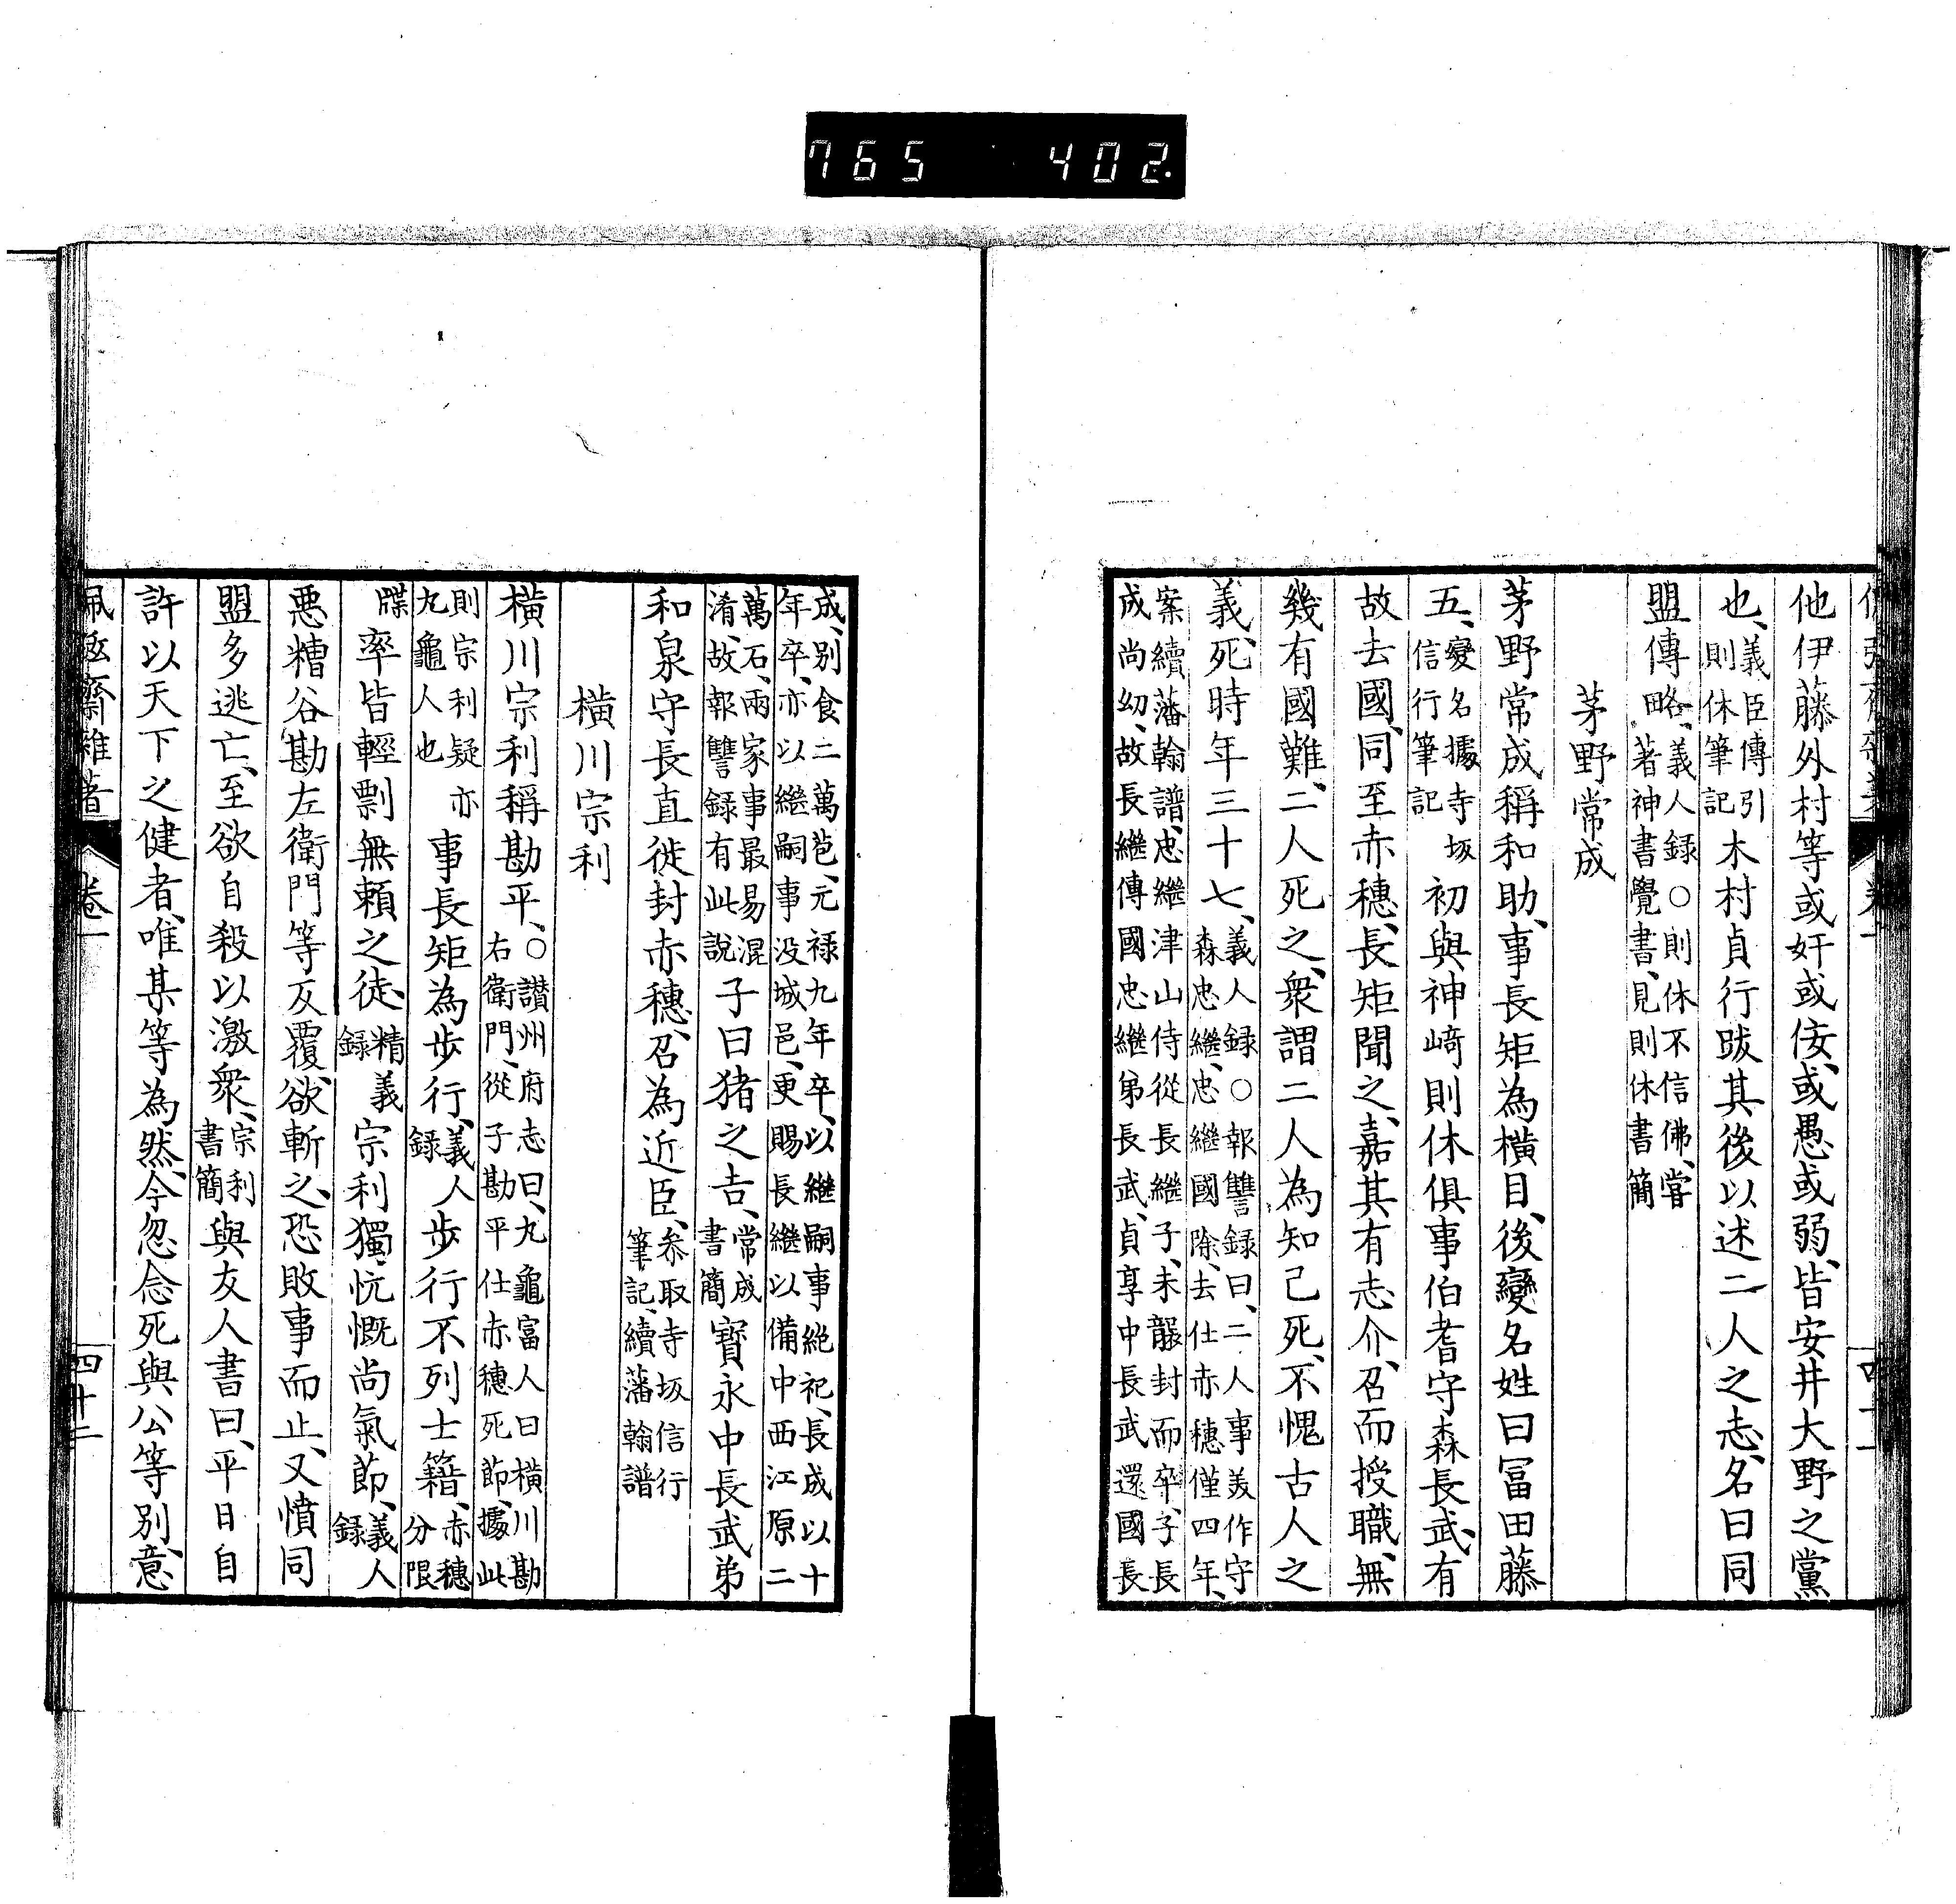 765 402.
他伊藤外村等或奸或佞、或愚或弱、皆安井大野之黨
也、義臣傳引則休筆記木村貞行跋其後以述二人之志、名曰同
盟傳略、義人録○則休不信佛、嘗著神書覺書、見則休書簡
茅野常成
茅野常成稱和助、事長矩為横目、後變名姓曰冨田藤
五、變名據寺坂信行筆記初與神﨑則休俱事伯耆守森長武、有
故去國、同至赤穗、長矩聞之、嘉其有志介、召而授職、無
幾有國難、二人死之、衆謂二人為知己死、不愧古人之
義、死時年三十七、義人録○報讐録曰、二人事美作守森忠繼、忠繼國除、去仕赤穗僅四年、
案續藩翰譜、忠繼津山侍從長繼子、未襲封而卒、子長成尚幼、故長繼傳國忠繼弟長武、貞享中長武還國長
成、別食二萬苞、元禄九年卒、以繼嗣事絶祀、長成以十年卒、亦以繼嗣事没城邑、更賜長繼以備中西江原二
萬石、兩家事最易混淆、故報讐録有此說子曰猪之吉、常成書簡寳永中長武弟
和泉守長直徙封赤穗、召為近臣、叅取寺坂信行筆記、續藩翰譜
横川宗利
横川宗利稱勘平、○讃州府志曰、丸龜富人曰横川勘右衛門、從子勘平仕赤穗死節、據此
則宗利疑亦丸龜人也事長矩為步行、義人録步行不列士籍、赤穗分限
牒率皆輕剽無賴之徒、精義録宗利獨忼慨尚氣節、義人録
悪糟谷勘左衛門等反覆、欲斬之、恐敗事而止、又憤同
盟多逃亡、至欲自殺以激衆、宗利書簡與友人書曰、平日自
許以天下之健者、唯某等為然、今忽念死與公等別、意
佩弦齋雜著 卷一 四十二